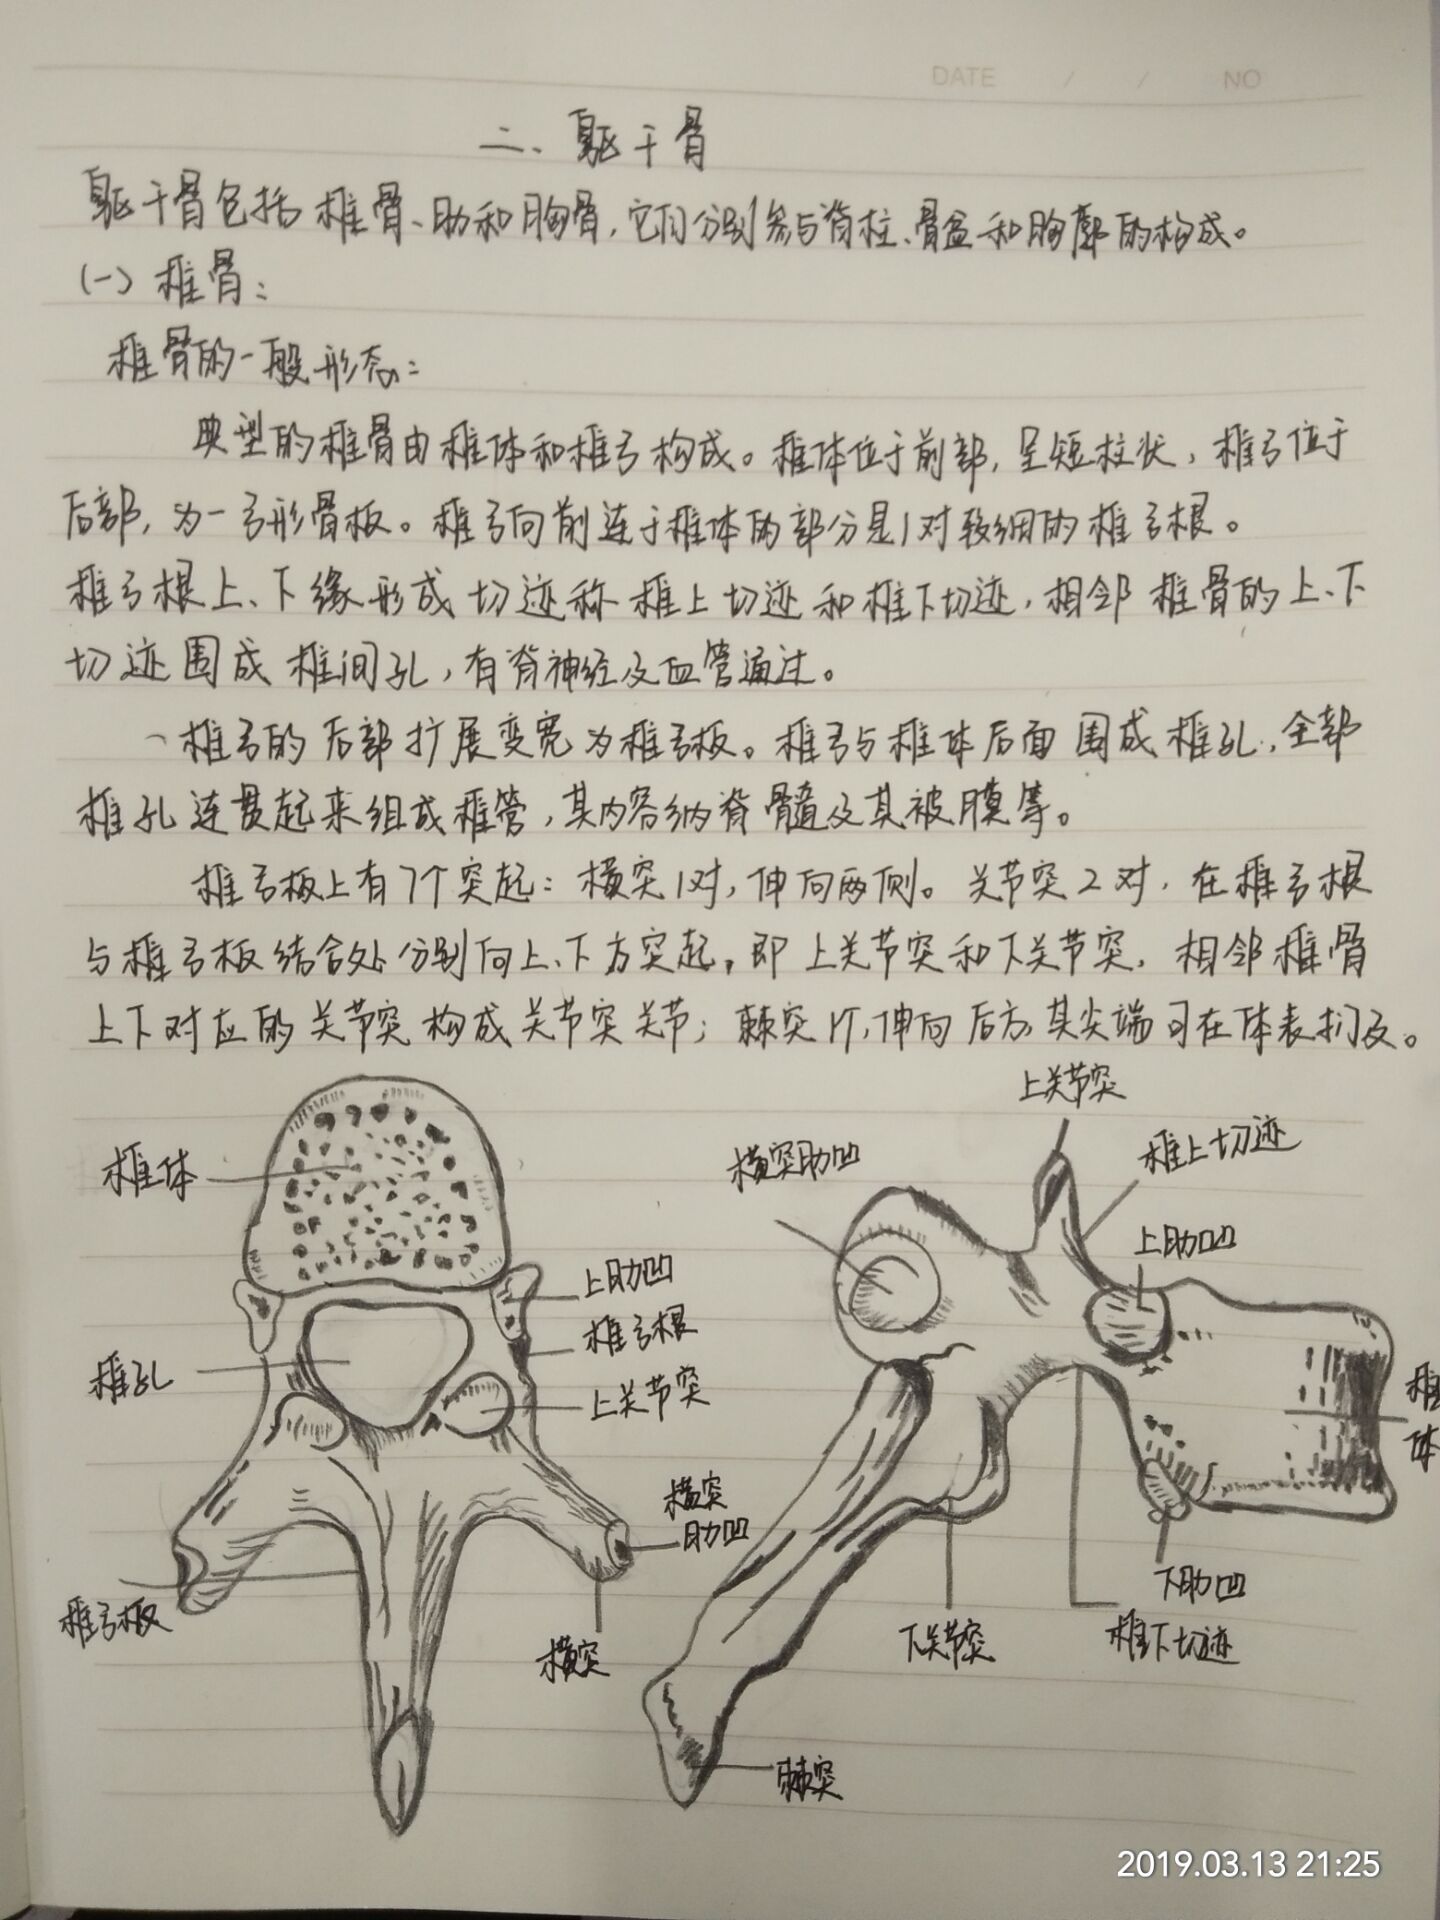 DATE / / NO
二、躯干骨
躯干骨包括椎骨、肋和胸骨,它们分别参与脊柱、骨盆和胸廓的构成。
(一)椎骨:
椎骨的一般形态:
典型的椎骨由椎体和椎弓构成。椎体位于前部,呈短柱状,椎弓位于
后部,为一弓形骨板。椎弓向前连于椎体的部分是1对较细的椎弓根。
椎弓根上、下缘形成切迹称椎上切迹和椎下切迹,相邻椎骨的上、下
切迹围成椎间孔,有脊神经及血管通过。
椎弓的后部扩展变宽为椎弓板。椎弓与椎体后面围成椎孔,全部
椎孔连贯起来组成椎管,其内容纳脊髓及其被膜等。
椎弓板上有7个突起:横突1对,伸向两侧。关节突2对,在椎弓根
与椎弓板结合处分别向上、下方突起,即上关节突和下关节突,相邻椎骨
上下对应的关节突构成关节突关节;棘突1个,伸向后方,其尖端可在体表扪及。
上关节突
横突肋凹
椎上切迹
椎体
上肋凹
上肋凹
椎弓根
椎孔
上关节突
椎
体
横突
肋凹
椎弓板
横突
下肋凹
下关节突
椎下切迹
棘突
2019.03.13 21:25